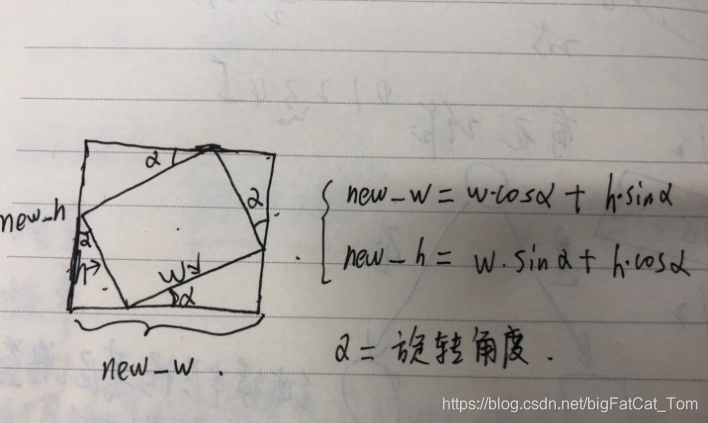 α
new_h
α
α
h
w
α
new_w = w·cosα + h·sinα
new_h = w·sinα + h·cosα
new_w .
α = 旋转角度 .
https://blog.csdn.net/bigFatCat_Tom